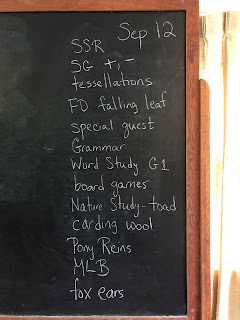 Sep 12
SSR
SG +, -
tessellations
FD falling leaf
special guest
Grammar
Word Study G1
board games
Nature Study - toad
carding wool
Pony Reins
MLB
fox ears